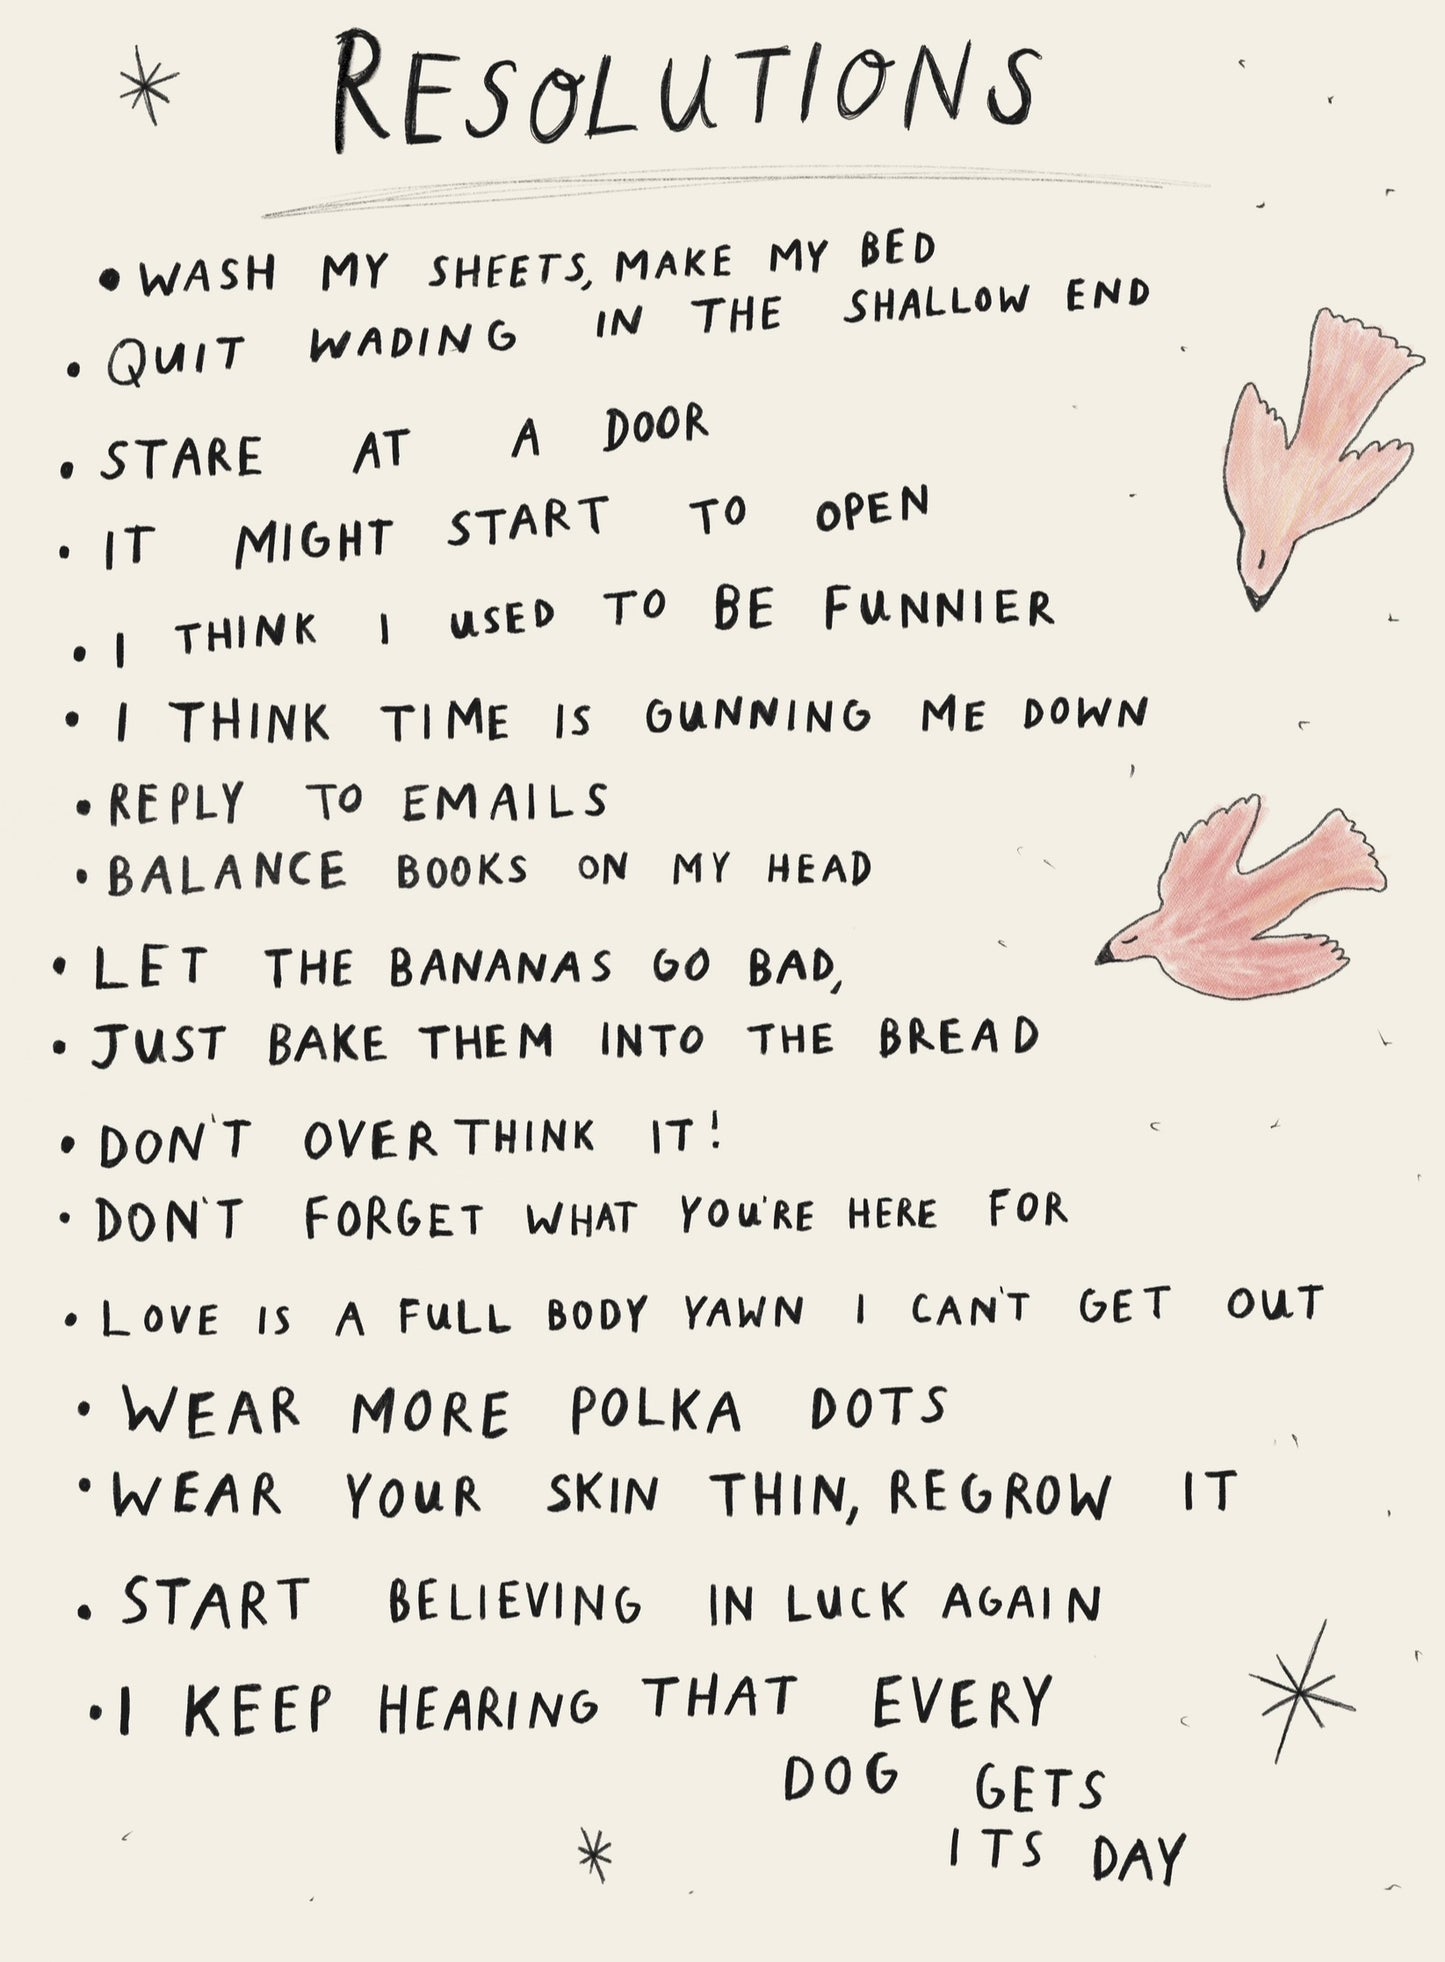 RESOLUTIONS
• WASH MY SHEETS, MAKE MY BED
• QUIT WADING IN THE SHALLOW END
• STARE AT A DOOR
• IT MIGHT START TO OPEN
• I THINK I USED TO BE FUNNIER
• I THINK TIME IS GUNNING ME DOWN
• REPLY TO EMAILS
• BALANCE BOOKS ON MY HEAD
• LET THE BANANAS GO BAD,
• JUST BAKE THEM INTO THE BREAD
• DON'T OVERTHINK IT!
• DON'T FORGET WHAT YOU'RE HERE FOR
• LOVE IS A FULL BODY YAWN I CAN'T GET OUT
• WEAR MORE POLKA DOTS
• WEAR YOUR SKIN THIN, REGROW IT
• START BELIEVING IN LUCK AGAIN
• I KEEP HEARING THAT EVERY
DOG GETS
ITS DAY